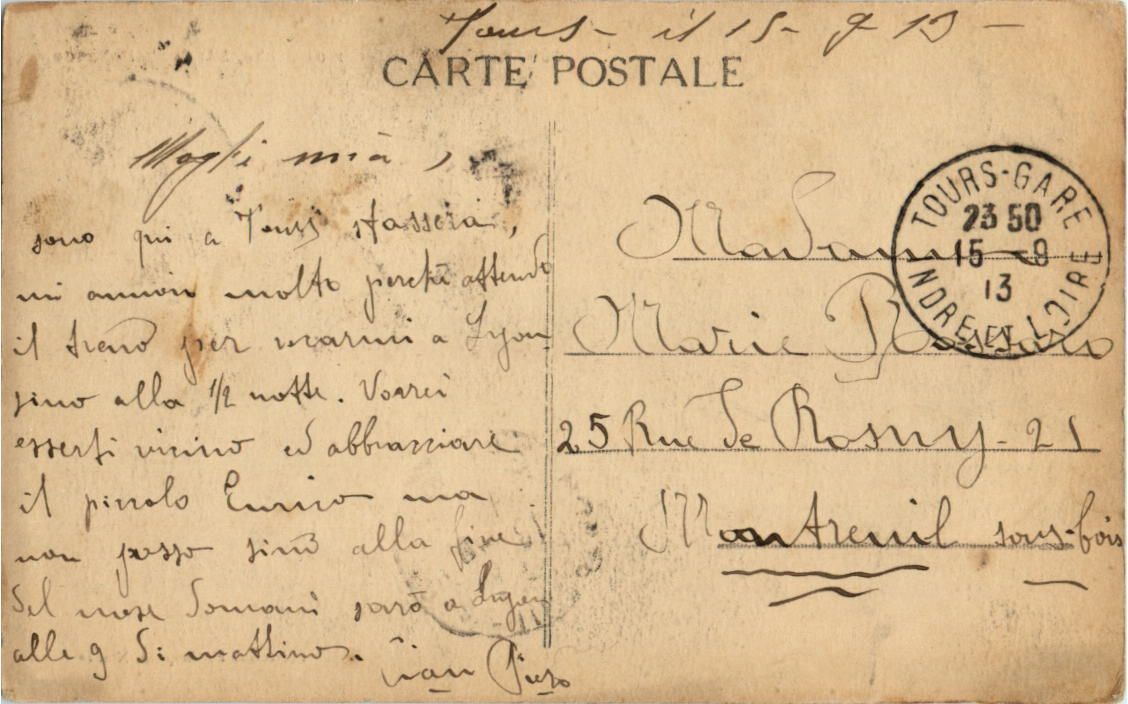 Tours - il 15 - 9 13 -
CARTE POSTALE
Moglie mia,
sono qui a Tours stassera,
mi annoio molto perchè attendo
il treno per recarmi a Lyon
sino alla 1/2 notte. Vorrei
esserti vicino ed abbracciare
il piccolo Enrico ma
non posso sino alla fine
del mese domani sarò a Lyon
alle 9 di mattino.
Gian Piero
Madame
Marie
25 Rue de Rosny - 25
Montreuil sous-bois
TOURS-GARE
23 50
15 - 9
13
INDRE-ET-LOIRE